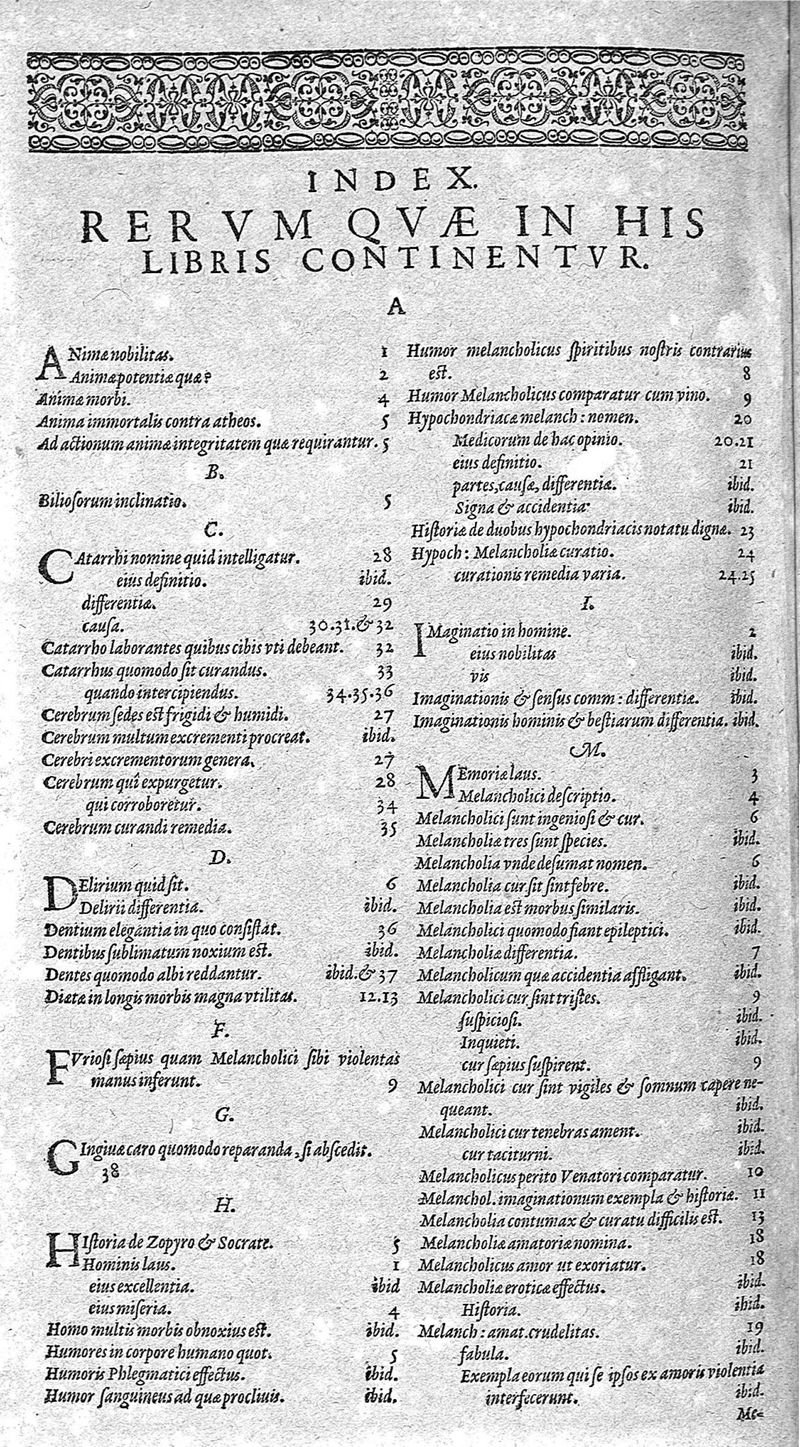 INDEX.
RERVM QVÆ IN HIS
LIBRIS CONTINENTVR.
A
ANimæ nobilitas. 1
Animæ potentiæ quæ? 2
Animæ morbi. 4
Anima immortalis contra atheos. 5
Ad actionum animæ integritatem quæ requirantur. 5
B.
Bilioſorum inclinatio. 5
C.
CAtarrhi nomine quid intelligatur. 28
eius definitio. ibid.
differentiæ. 29
cauſa. 30.31.& 32
Catarrho laborantes quibus cibis vti debeant. 32
Catarrhus quomodo ſit curandus. 33
quando intercipiendus. 34.35.36
Cerebrum ſedes eſt frigidi & humidi. 27
Cerebrum multum excrementi procreat. ibid.
Cerebri excrementorum genera. 27
Cerebrum quî expurgetur. 28
qui corroboretur. 34
Cerebrum curandi remedia. 35
D.
DElirium quid ſit. 6
Delirii differentia. ibid.
Dentium elegantia in quo conſiſtat. 36
Dentibus ſublimatum noxium eſt. ibid.
Dentes quomodo albi reddantur. ibid.& 37
Diætæ in longis morbis magna vtilitas. 12.13
F.
FVrioſi ſæpius quam Melancholici ſibi violentas
manus inferunt. 9
G.
GIngiuæ caro quomodo reparanda, ſi abſcedit.
38
H.
HIſtoria de Zopyro & Socrate. 5
Hominis laus. 1
eius excellentia. ibid
eius miſeria. 4
Homo multis morbis obnoxius eſt. ibid.
Humores in corpore humano quot. 5
Humoris Phlegmatici effectus. ibid.
Humor ſanguineus ad quæ procliuis. ibid.
Humor melancholicus ſpiritibus noſtris contrarius
eſt. 8
Humor Melancholicus comparatur cum vino. 9
Hypochondriacæ melanch: nomen. 20
Medicorum de hac opinio. 20.21
eius definitio. 21
partes, cauſæ, differentiæ. ibid.
Signa & accidentia. ibid.
Hiſtoriæ de duobus hypochondriacis notatu dignæ. 23
Hypoch: Melancholiæ curatio. 24
curationis remedia varia. 24.25
I.
IMaginatio in homine. 2
eius nobilitas ibid.
vis ibid.
Imaginationis & ſenſus comm: differentiæ. ibid.
Imaginationis hominis & beſtiarum differentia. ibid.
M.
MEmoriæ laus. 3
Melancholici deſcriptio. 4
Melancholici ſunt ingenioſi & cur. 6
Melancholiæ tres ſunt ſpecies. ibid.
Melancholia vnde deſumat nomen. 6
Melancholia cur ſit ſint febre. ibid.
Melancholia eſt morbus ſimilaris. ibid.
Melancholici quomodo fiant epileptici. ibid.
Melancholiæ differentia. 7
Melancholicum quæ accidentia affligant. ibid.
Melancholici cur ſint triſtes. 9
ſuſpicioſi. ibid.
Inquieti. ibid.
cur ſæpius ſuſpirent. 9
Melancholici cur ſint vigiles & ſomnum capere ne-
queant. ibid.
Melancholici cur tenebras ament. ibid.
cur taciturni. ibid.
Melancholicus perito Venatori comparatur. 10
Melanchol. imaginationum exempla & hiſtoriæ. 11
Melancholia contumax & curatu difficilis eſt. 13
Melancholiæ amatoriæ nomina. 18
Melancholicus amor ut exoriatur. 18
Melancholiæ eroticæ effectus. ibid.
Hiſtoria. ibid.
Melanch: amat. crudelitas. 19
fabula. ibid.
Exempla eorum qui ſe ipſos ex amoris violentia
interfecerunt. ibid.
Me-